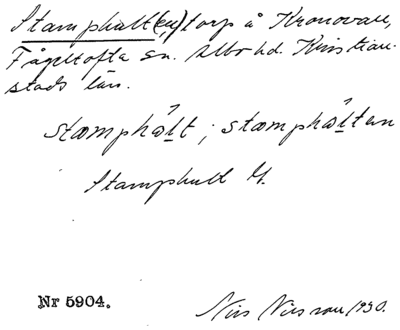 Stamphult(en) torp å Kronovall,
Fågeltofta sn. Albo hd. Kristian-
stads län.
stamphält; stamphälten
Stamphult
Nr 5904.
Nils Nilsson 1930.